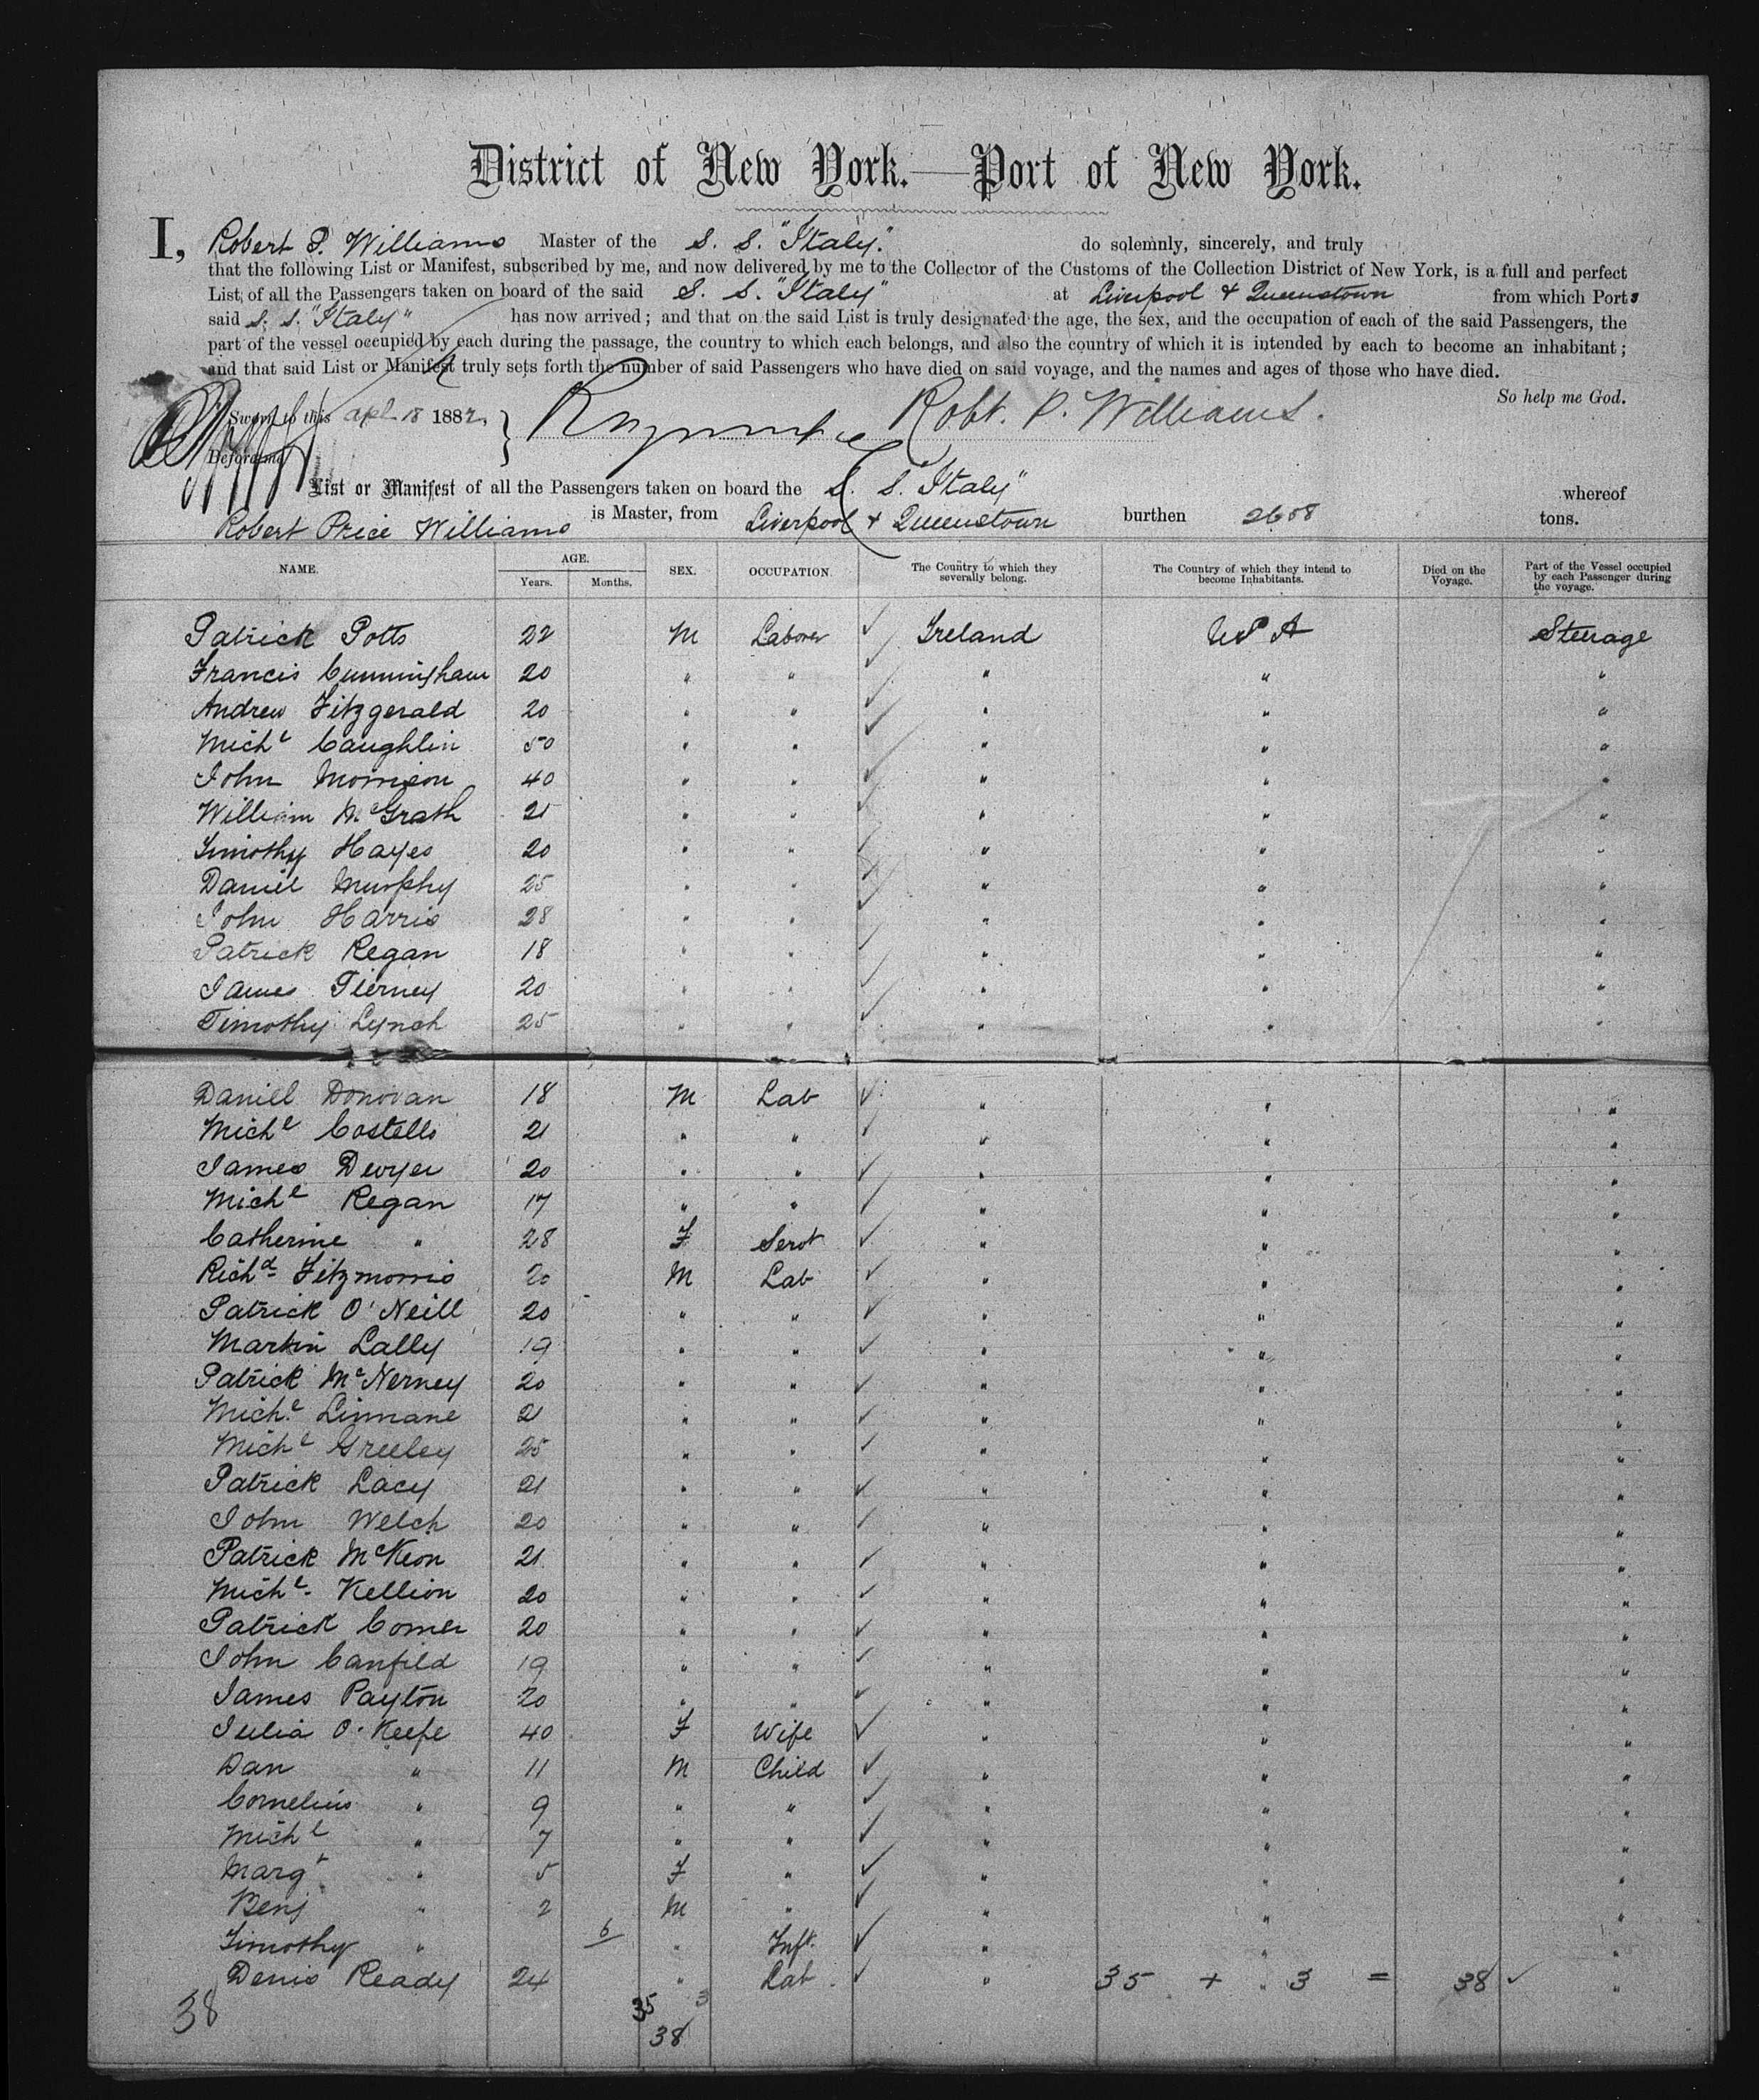 District of New York.—Port of New York.
I, Robert P. Williams Master of the S. S. "Italy" do solemnly, sincerely, and truly
that the following List or Manifest, subscribed by me, and now delivered by me to the Collector of the Customs of the Collection District of New York, is a full and perfect
List of all the Passengers taken on board of the said S. S. "Italy" at Liverpool & Queenstown from which Ports
said S. S. "Italy" has now arrived; and that on the said List is truly designated the age, the sex, and the occupation of each of the said Passengers, the
part of the vessel occupied by each during the passage, the country to which each belongs, and also the country of which it is intended by each to become an inhabitant;
and that said List or Manifest truly sets forth the number of said Passengers who have died on said voyage, and the names and ages of those who have died.
So help me God.
Sworn to this Apl 18 1882, Robt. P. Williams.
Before me
List or Manifest of all the Passengers taken on board the S. S. "Italy" whereof
Robert Price Williams is Master, from Liverpool & Queenstown burthen 2608 tons.
NAME. AGE. Years. Months. SEX. OCCUPATION. The Country to which they severally belong. The Country of which they intend to become Inhabitants. Died on the Voyage. Part of the Vessel occupied by each Passenger during the voyage.
Patrick Potts 22 M Laborer ✓ Ireland USA Steerage
Francis Cunningham 20 " " ✓ " " "
Andrew Fitzgerald 20 " " ✓ " " "
Michl Caughlin 50 " " ✓ " " "
John Morrison 40 " " ✓ " " "
William McGrath 21 " " ✓ " " "
Timothy Hayes 20 " " ✓ " " "
Daniel Murphy 25 " " ✓ " " "
John Harris 28 " " ✓ " " "
Patrick Regan 18 " " ✓ " " "
James Tierney 20 " " ✓ " " "
Timothy Lynch 25 " " ✓ " " "
Daniel Donovan 18 M Lab ✓ " " "
Michl Costello 21 " " ✓ " " "
James Dwyer 20 " " ✓ " " "
Michl Regan 17 " " ✓ " " "
Catherine " 28 F Servt ✓ " " "
Richd Fitzmorris 20 M Lab ✓ " " "
Patrick O'Neill 20 " " ✓ " " "
Martin Lally 19 " " ✓ " " "
Patrick McNerney 20 " " ✓ " " "
Michl Linnane 21 " " ✓ " " "
Michl Greeley 25 " " ✓ " " "
Patrick Lacy 21 " " ✓ " " "
John Welch 20 " " ✓ " " "
Patrick McKeon 21 " " ✓ " " "
Michl Kellion 20 " " ✓ " " "
Patrick Comer 20 " " ✓ " " "
John Canfild 19 " " ✓ " " "
James Payton 20 " " ✓ " " "
Julia O'Keefe 40 F Wife ✓ " " "
Dan " 11 M Child ✓ " " "
Cornelius " 9 " " ✓ " " "
Michl " 7 " " ✓ " " "
Margt " 5 F " ✓ " " "
Benj " 2 M " ✓ " " "
Timothy " 6 " Inft. ✓ " " "
Denis Ready 24 " Lab ✓ " 35 + 3 = 38 ✓ "
38 35 3
38